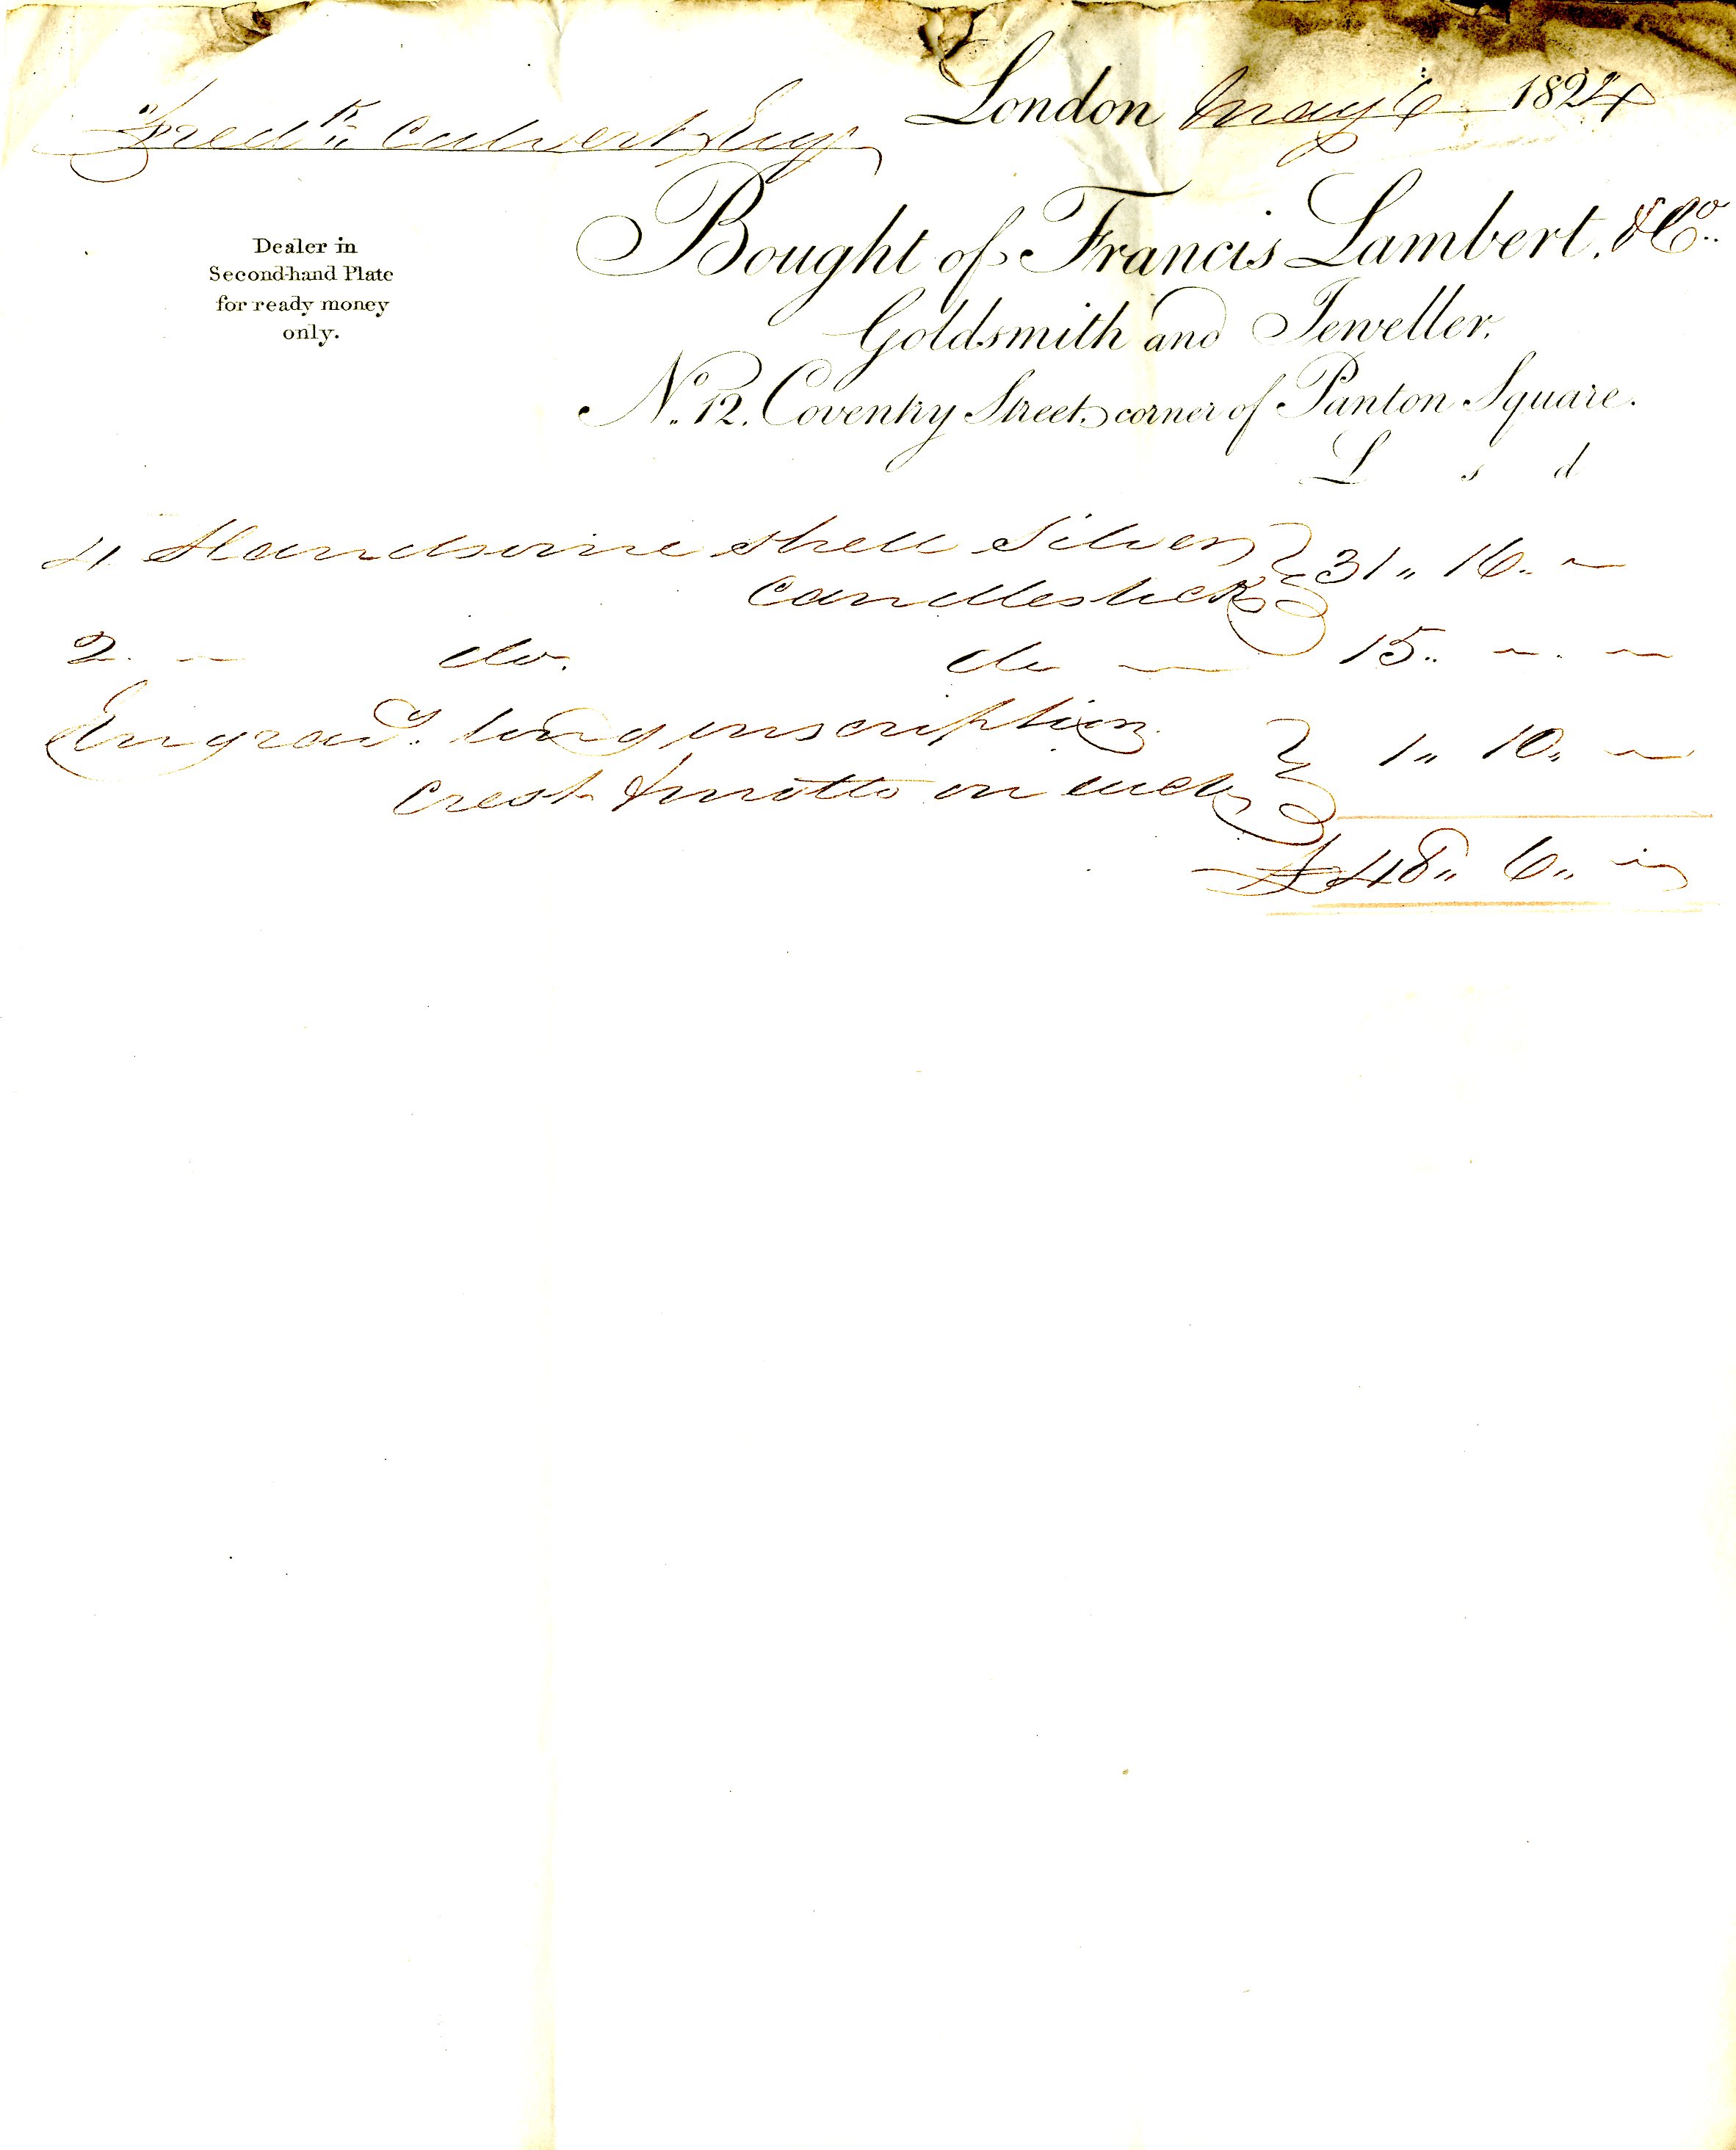 London May 6 1824
Fredk Calvert Esqr
Dealer in
Second-hand Plate
for ready money
only.
Bought of Francis Lambert. & Co..
Goldsmith and Jeweller.
No. 12. Coventry Street, corner of Panton Square.
L s d
4 Handsome shell Silver
Candlesticks } 31 " 16 .. –
2 – do. do – 15 .. – . –
Engravg. long inscription
Crest & motto on each } 1 " 10 " –
£ 48 " 6 " –